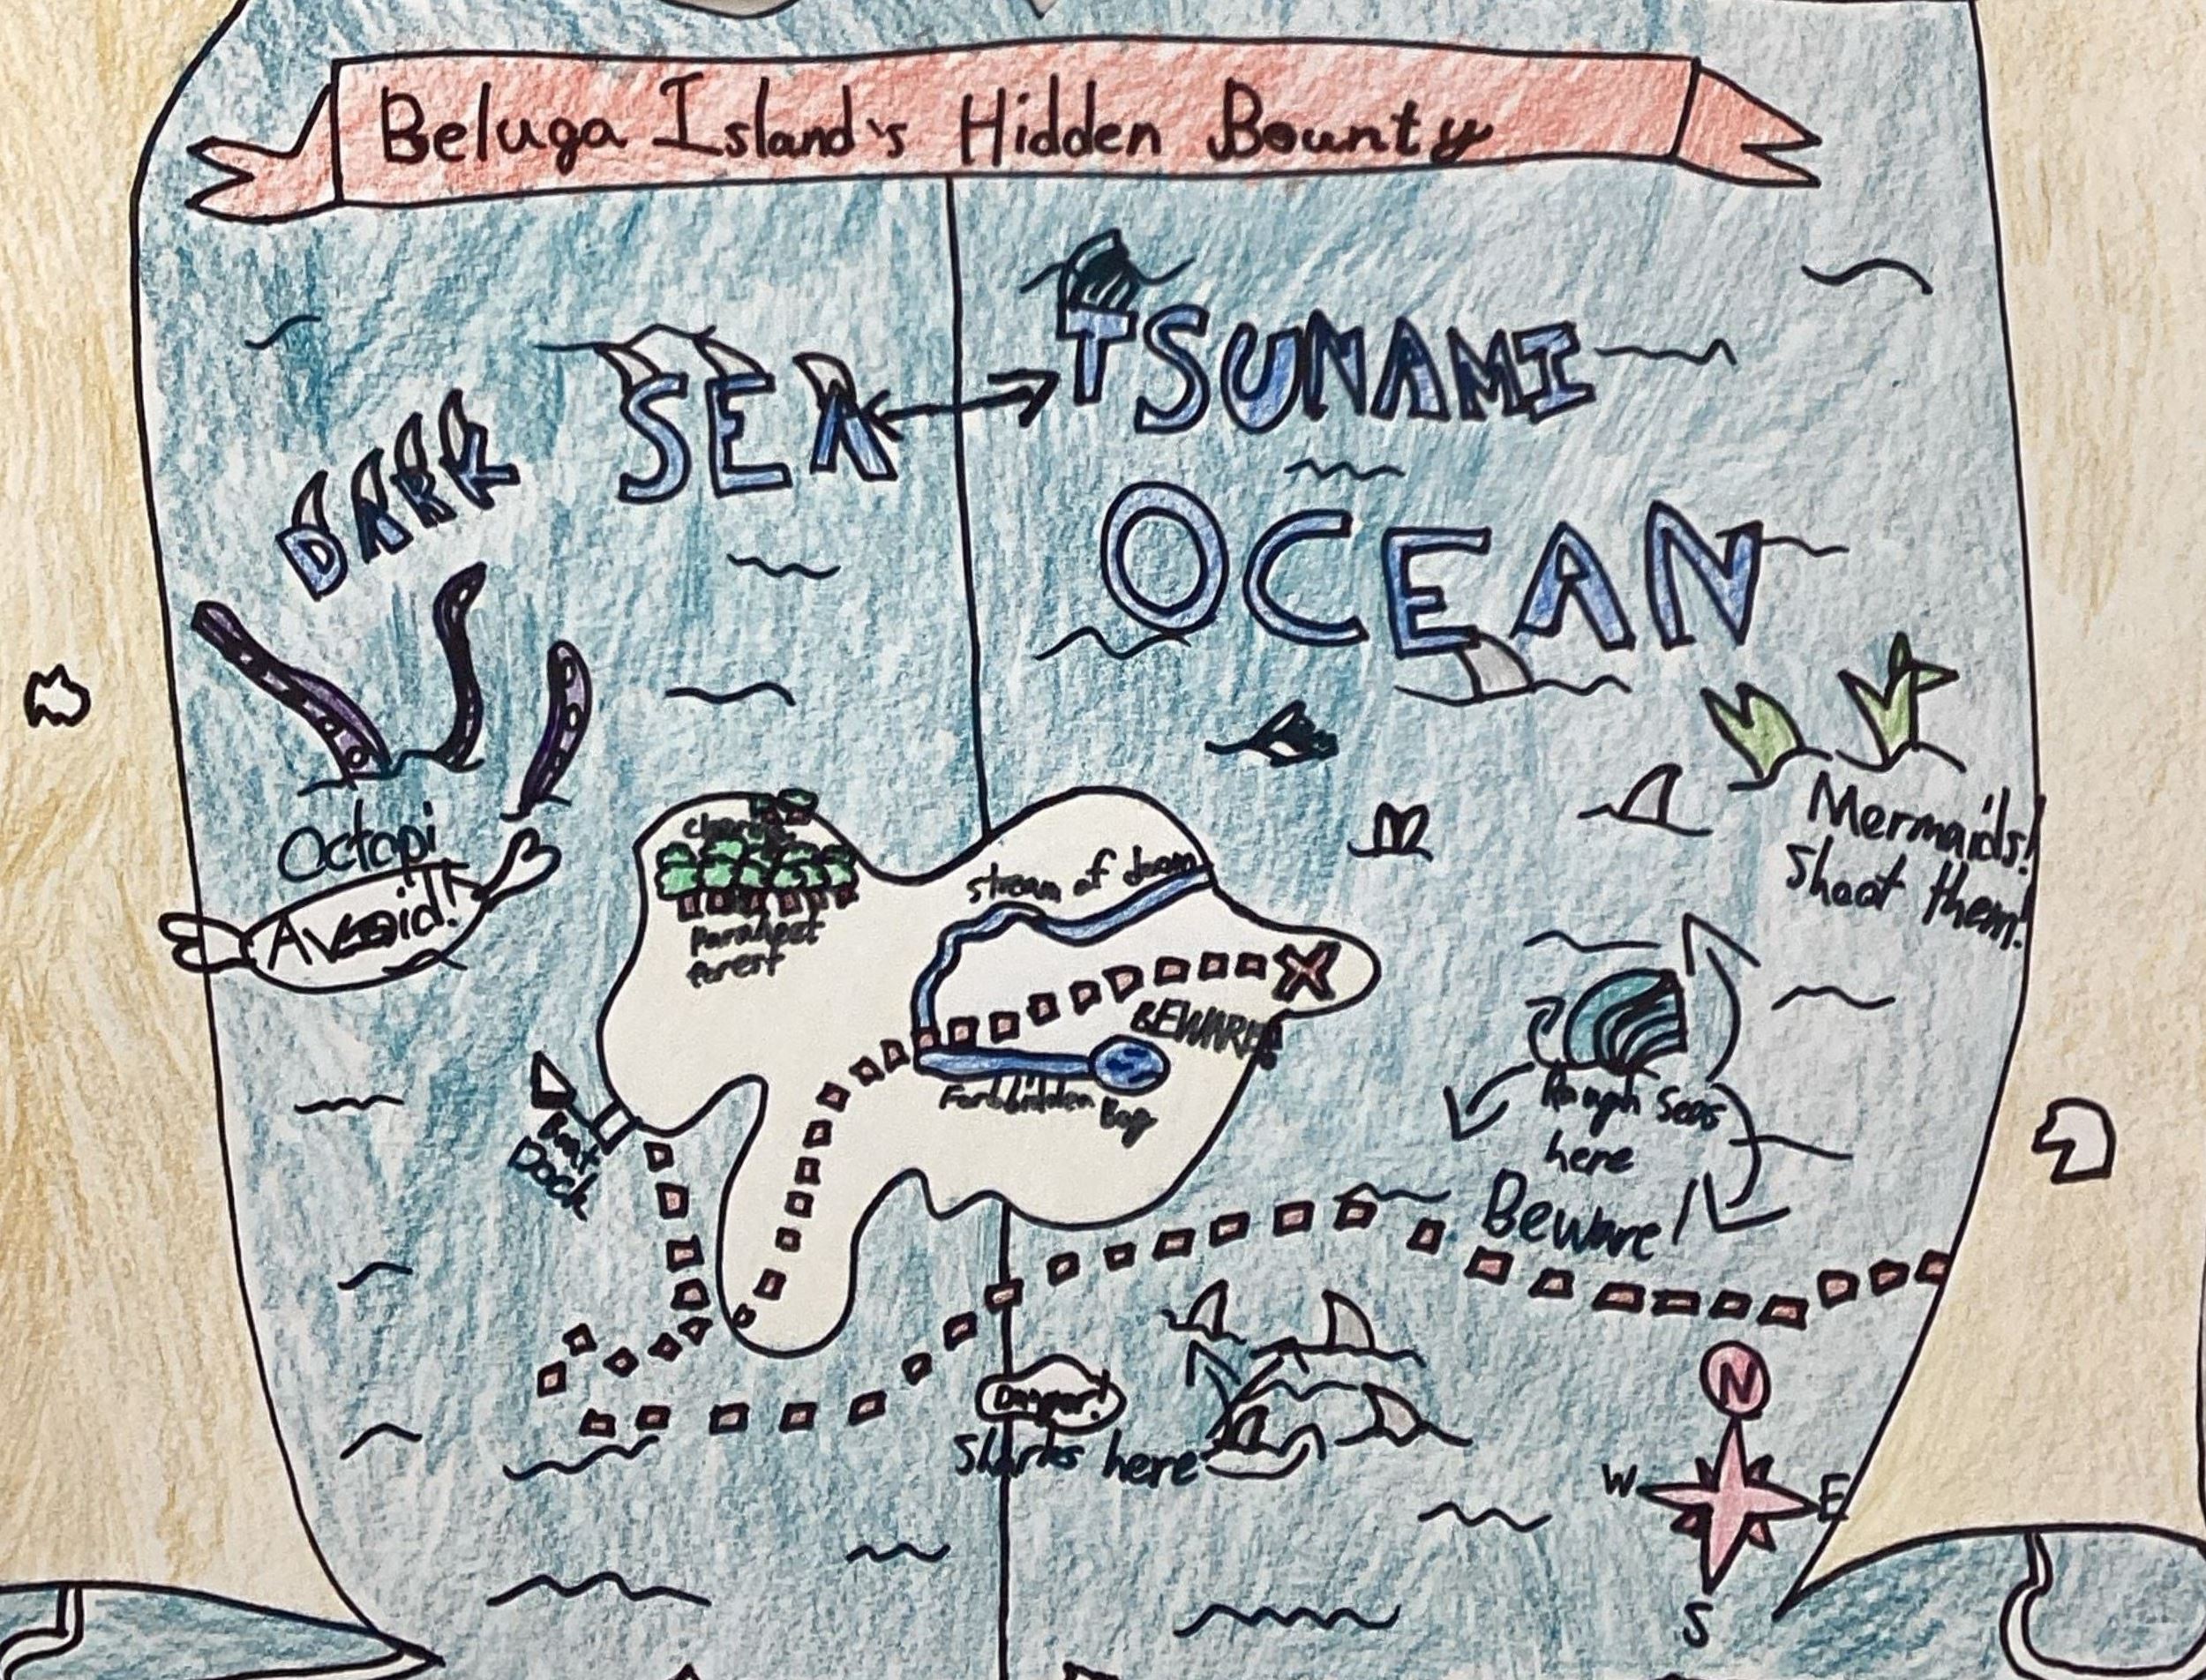 Beluga Island's Hidden Bounty
DARK SEA
TSUNAMI
OCEAN
Octopi
Avoid!
Mermaids!
Shoot them!
Stream of doom
forest
BEWARE!
Forbbidden Bog
Boat
Dock
Rough Seas
here
Beware!
Danger!
Sharks here
N
W
E
S